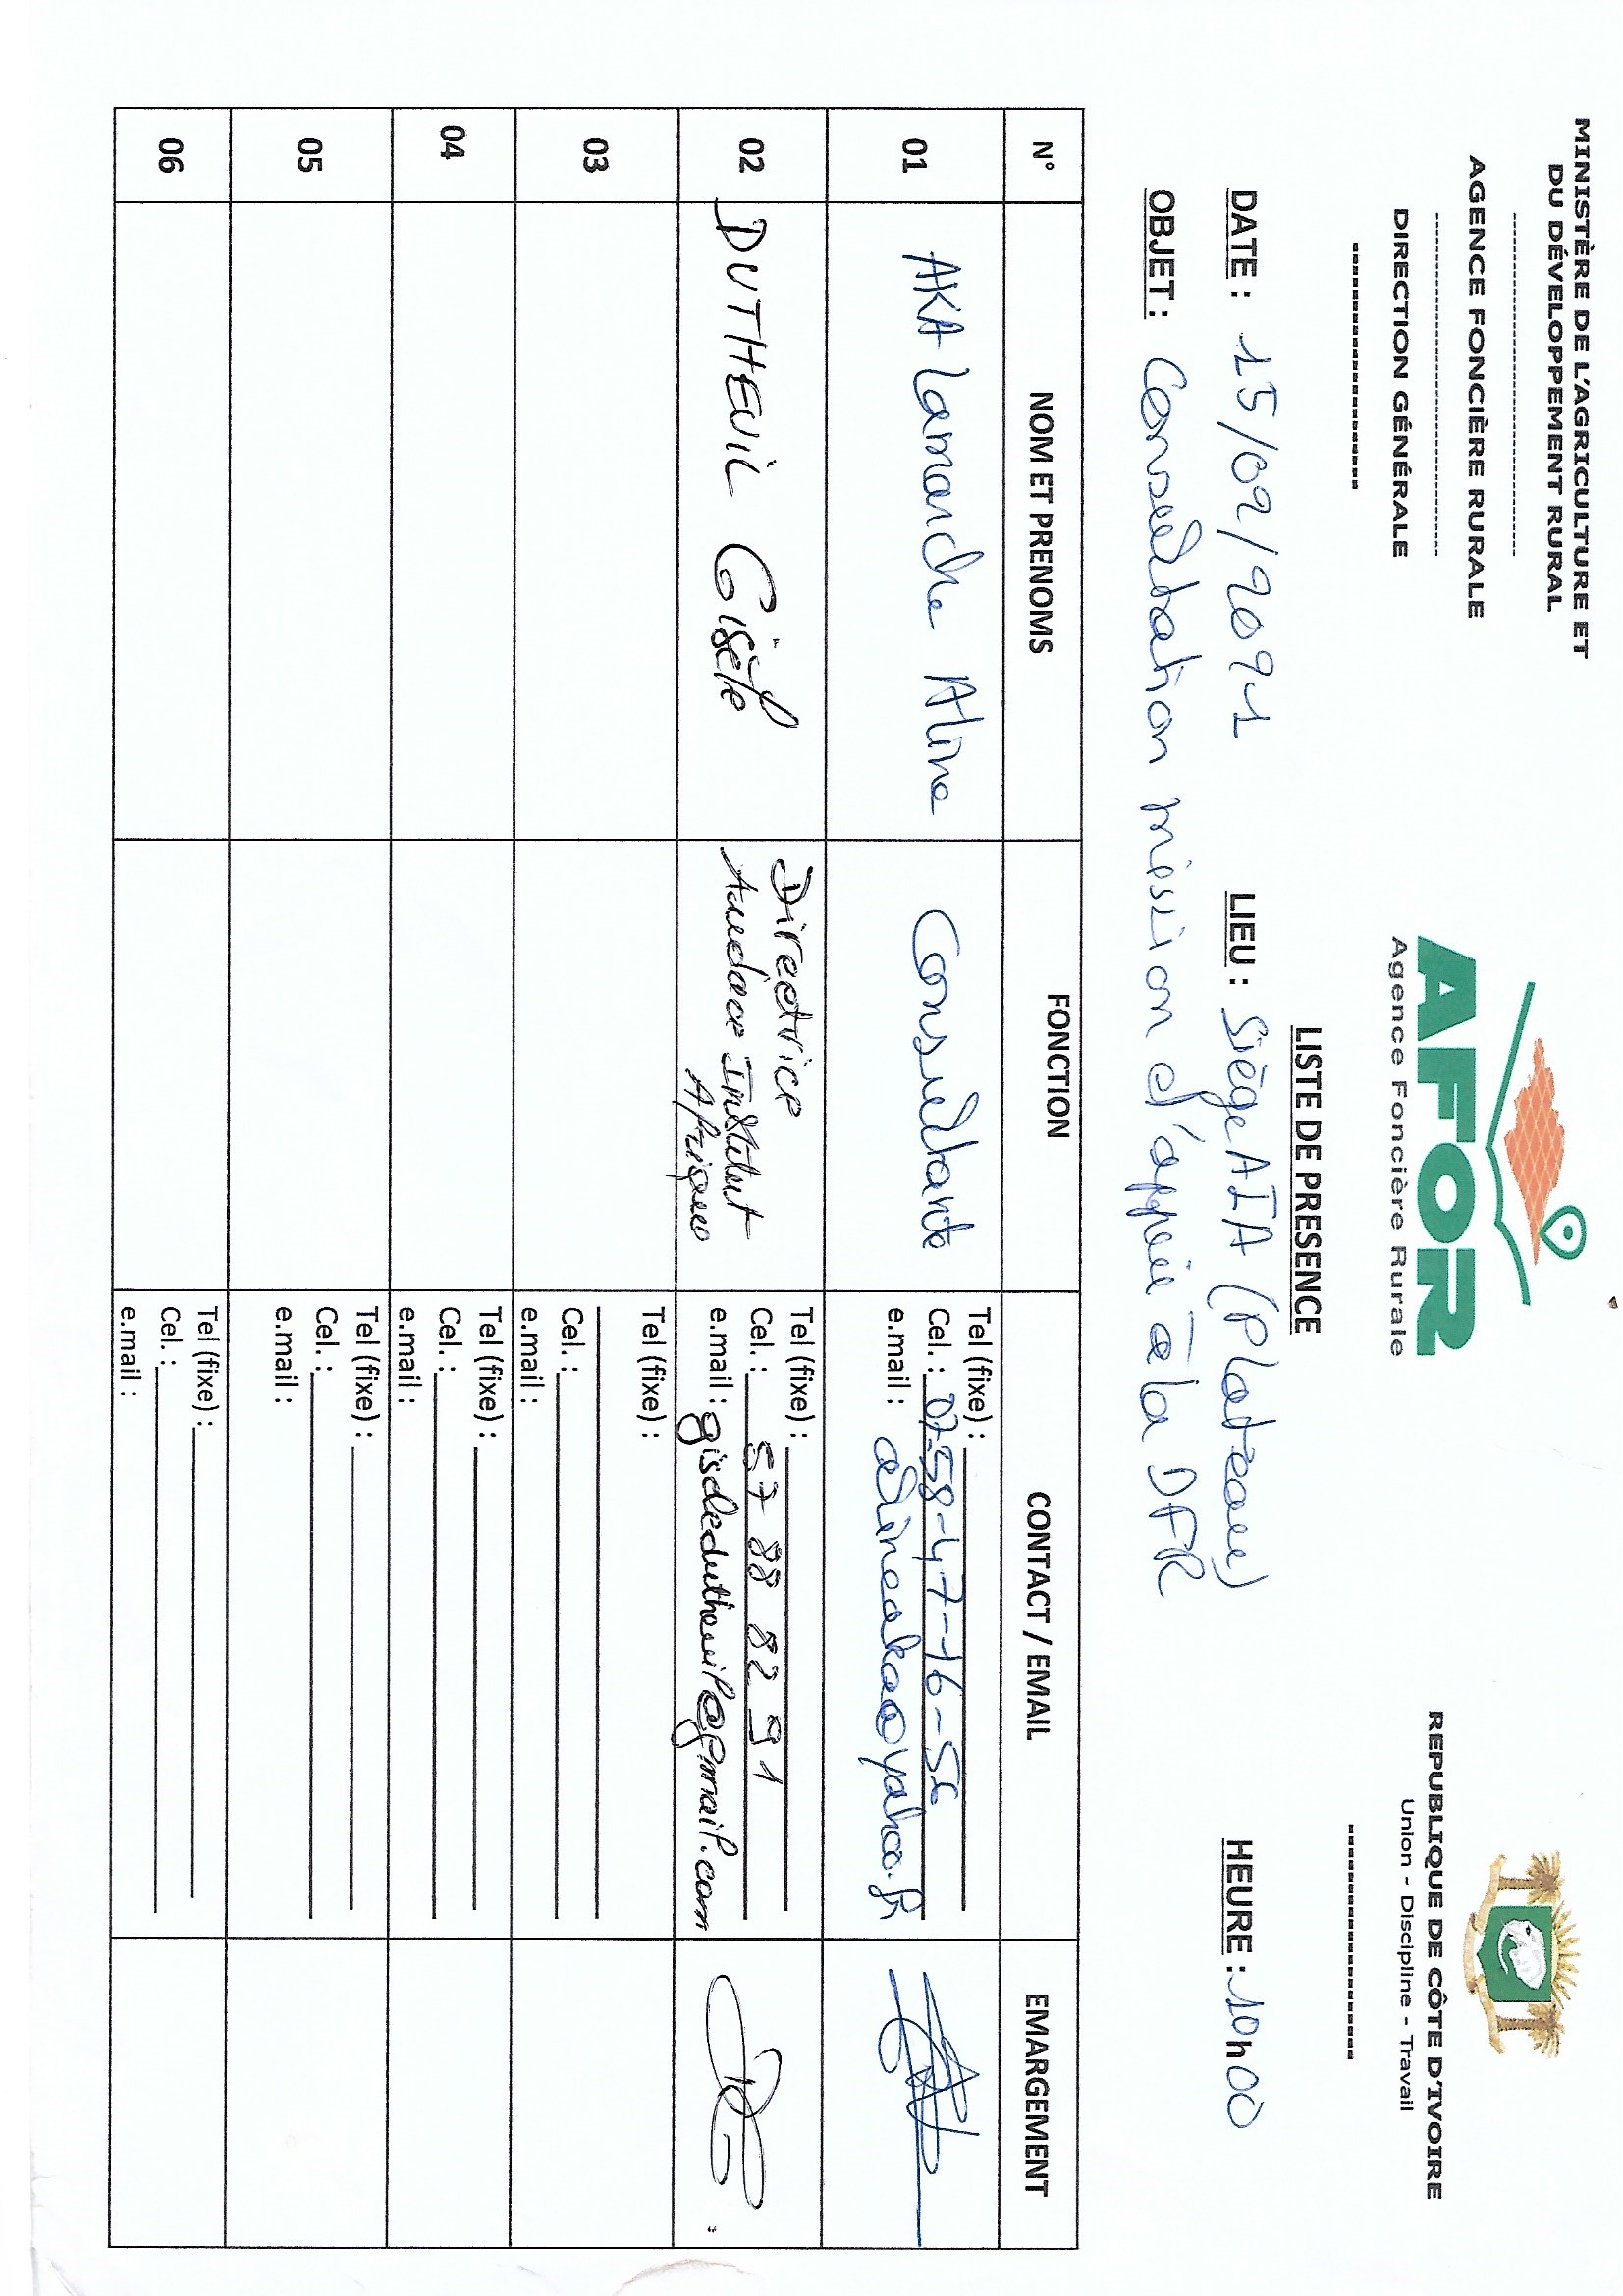 MINISTÈRE DE L'AGRICULTURE ET
DU DÉVELOPPEMENT RURAL
AGENCE FONCIÈRE RURALE
DIRECTION GÉNÉRALE
AFOR
Agence Foncière Rurale
REPUBLIQUE DE CÔTE D'IVOIRE
Union - Discipline - Travail
LISTE DE PRESENCE
DATE : 15/02/2021 LIEU : Siège AIA (Plateau) HEURE : 10h00
OBJET : Consultation mission d'appui à la DFR
N° NOM ET PRENOMS FONCTION CONTACT / EMAIL EMARGEMENT
01 AKA Lamarche Aline Consultante
Tel (fixe) :
Cel. : 07-58-47-16-56
e.mail : alineaka@yahoo.fr
02 DUTHEUIL Gisèle Directrice
Audace Institut
Afrique
Tel (fixe) :
Cel. : 57 88 82 91
e.mail : giseledutheuil@gmail.com
03
Tel (fixe) :
Cel. :
e.mail :
04
Tel (fixe) :
Cel. :
e.mail :
05
Tel (fixe) :
Cel. :
e.mail :
06
Tel (fixe) :
Cel. :
e.mail :